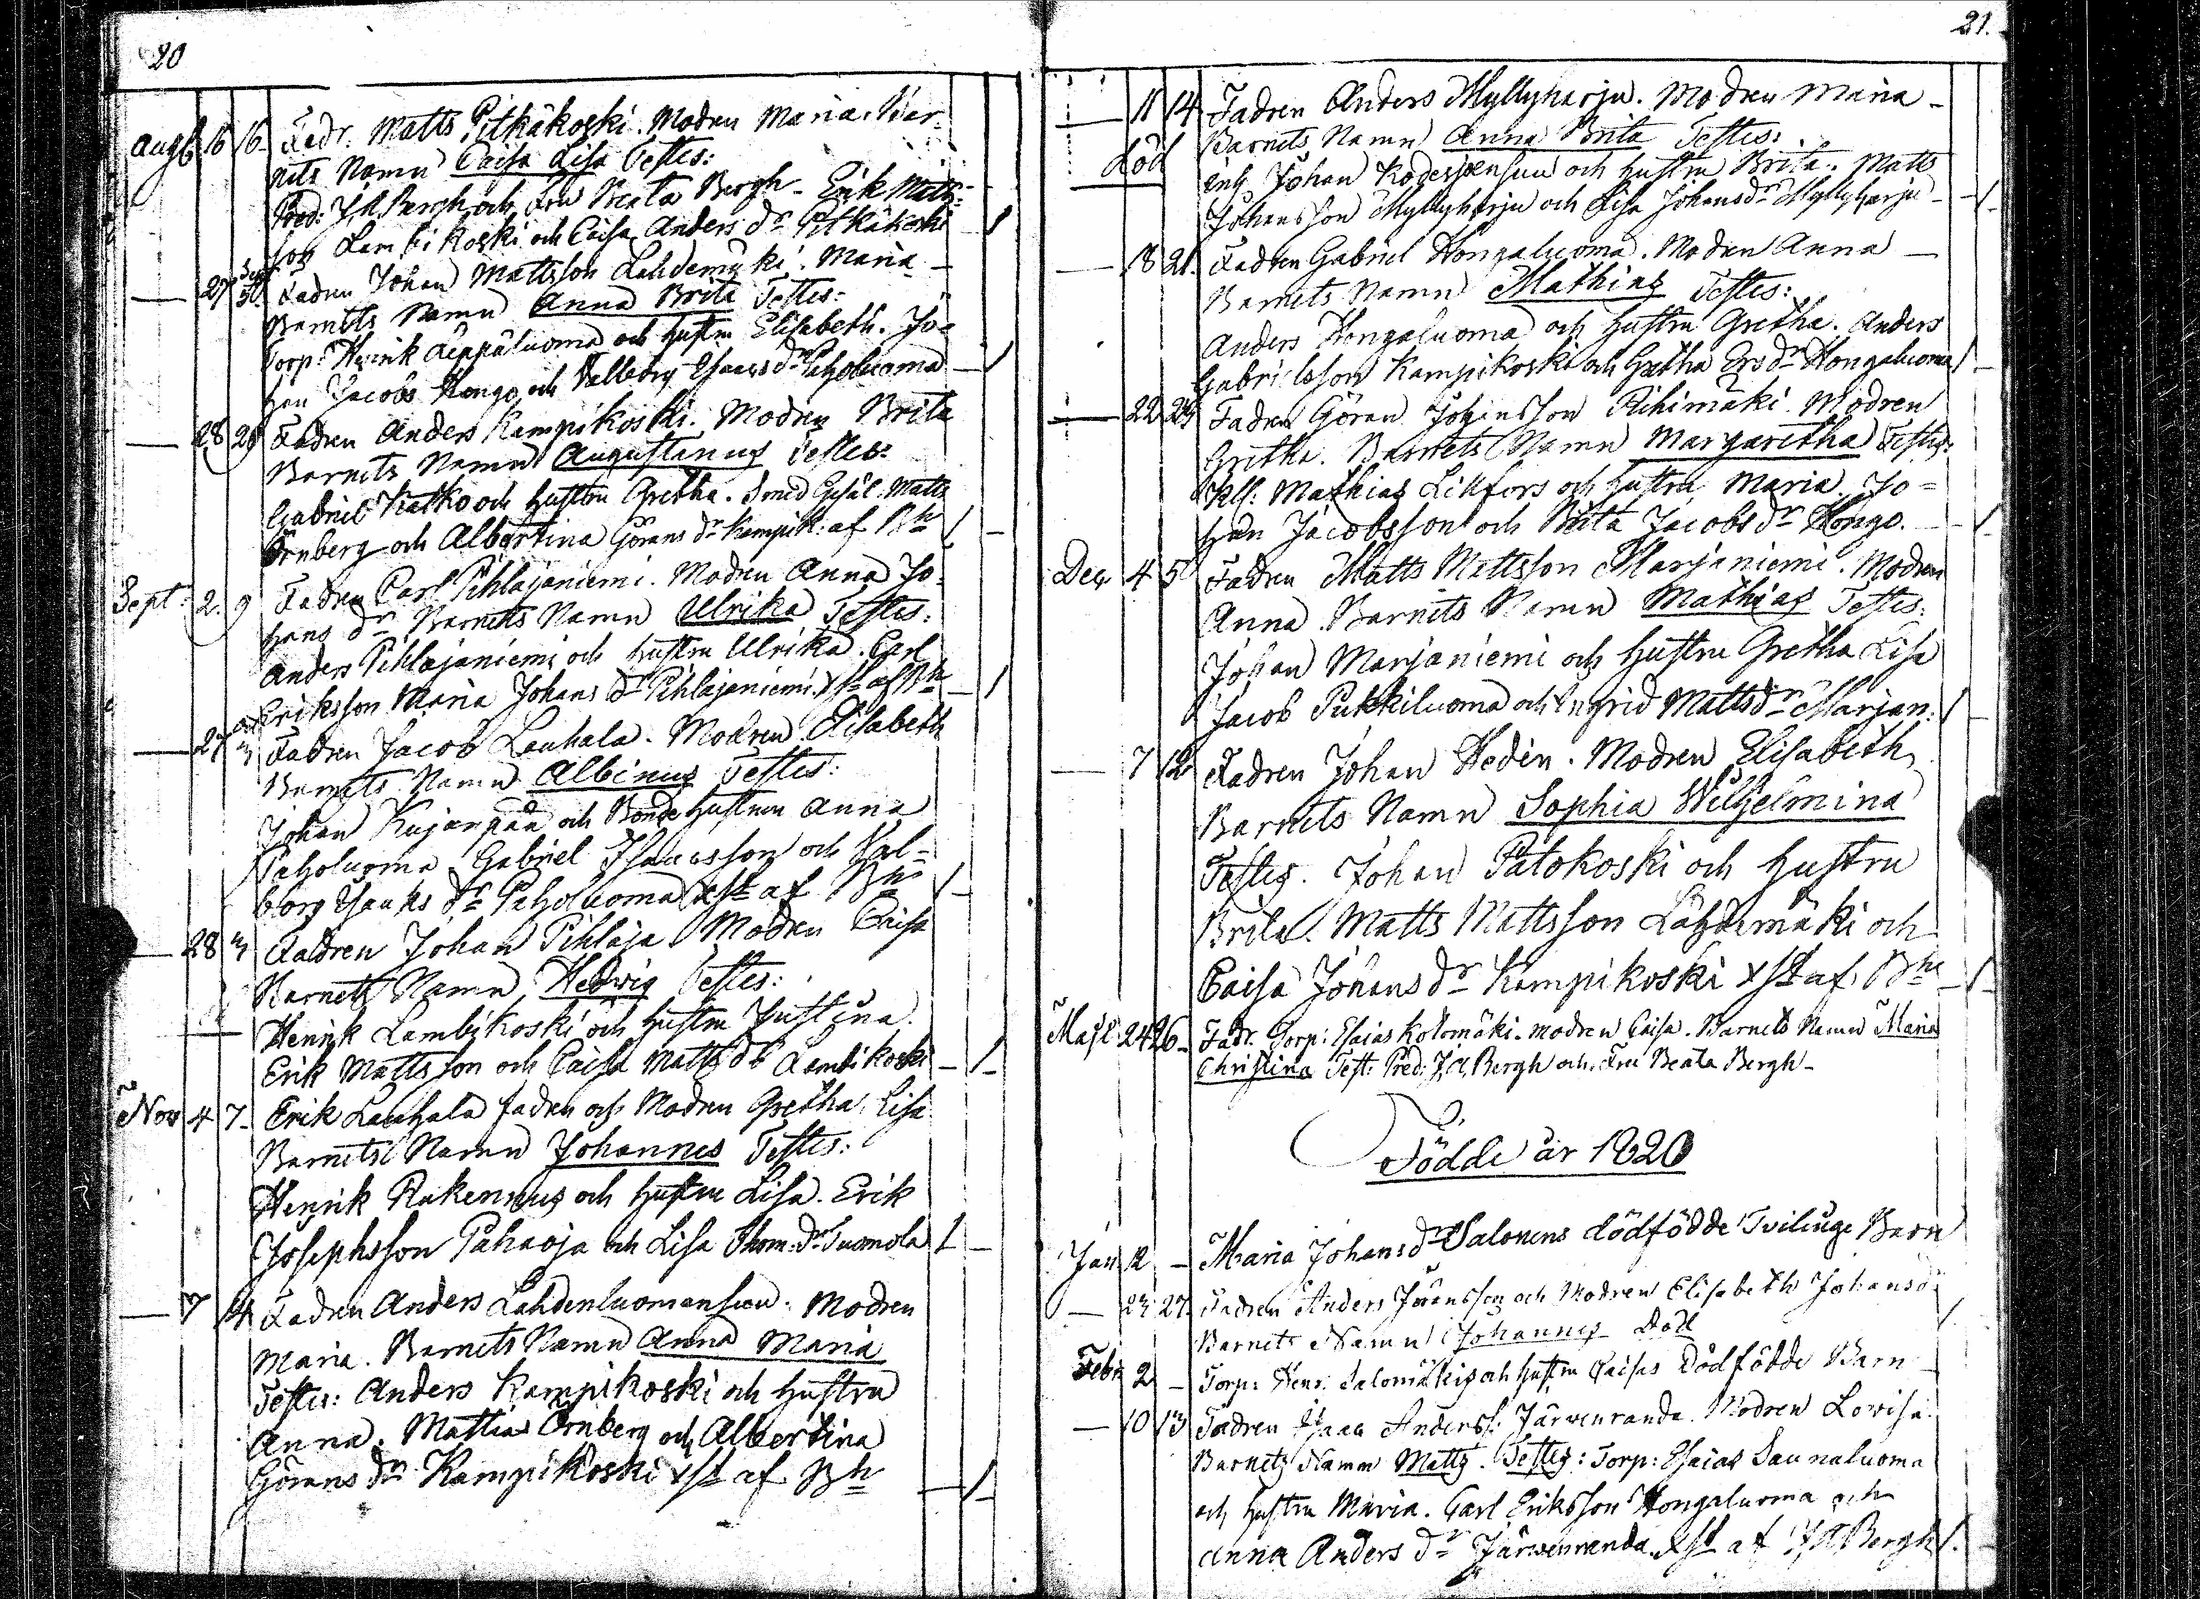 20
Augt 16 16 Fadr. Matts Pitkäkoski. Modren Maria. Bar-
nets Namn Caisa Lisa Testes:
Pred: J. A. Bergh och Fru Beata Bergh - Erik Matts-
son Lambikoski och Caisa Anders dr Pitkäkoski
27 Fadren Johan Mattsson Lahdemäki. Maria
Barnets Namn Anna Brita Testes:
Torp: Henrik Leppäluoma och hustru Elisabeth. Jo-
han Jacobs Hongo och Vallborg Esaacs dr Paholuoma
28 29 Fadren Anders Kampikoski. Modren Brita
Barnets Namn Augustinus Testes:
Gabriel Katko och hustru Gretha. Smed Gesäl: Matts
Örnberg och Albertina Görans dr Kampik: af Bh
Sept: 2. 9 Fadren Carl Pihlajaniemi. Modren Anna Jo-
hans dr Barnets Namn Ulrika Testes:
Anders Pihlajaniemi och hustru Ulrika. Carl
Eriksson Maria Johans dr Pihlajaniemi. xst af Bh
27 3 Fadren Jacob Lauhala. Modren Elisabeth
Barnets Namn Albinus Testes:
Johan Kujanpää och Bonde hustrun Anna
Paholuoma Gabriel Isaacsson och Val-
borg Isaaks dr Paholuoma xst af Bh
28 3 Fadren Johan Pihlaja Modren Caisa
Barnets Namn Hedvig Testes:
Henrik Lambikoski och hustru Justina.
Erik Mattsson och Caisa Matts dr Lambikoski
Nov 4 7 Erik Lauhala fadren och Modren Gretha Lisa
Barnets Namn Johannes Testes:
Henrik Rakennus och hustru Lisa. Erik
Josephsson Pahaoja och Lisa Thom: dr Tuomola
7 14 Fadren Anders Lahdenluomansuu. Modren
Maria. Barnets Namn Anna Maria
Testes: Anders Kampikoski och hustru
Anna. Mattias Örnberg och Albertina
Görans dr Kampikoski xst af Bh
21.
11 14 Fadren Anders Myllyharju. Modren Maria -
Död Barnets Namn Anna Brita Testes:
Johan och hustru Brita. Matts
Johansson Myllyharju och Lisa Johansdr Myllyharju
18 21. Fadren Gabriel Hongaluoma. Modren Anna
Barnets Namn Mathias Testes:
Anders Hongaluoma och hustru Gretha. Anders
Gabrielsson Kampikoski och Gretha Ersdr Hongaluoma
22 25 Fadren Göran Johansson Rihimäki. Modren
Gretha. Barnets Namn Margaretha Testes:
Mathias Lillfors och hustru Maria. Jo-
han Jacobsson och Brita Jacobs dr Hongo.
Dec. 4 5 Fadren Matts Mattsson Marjaniemi. Modren
Anna. Barnets Namn Mathias Testes:
Johan Marjaniemi och hustru Gretha Lisa
Jacob Pukkiluoma och Ingrid Mattsdr Marjan:
7 12 Fadren Johan Hedén. Modren Elisabeth
Barnets Namn Sophia Wilhelmina
Testes. Johan Patokoski och hustru
Brita. Matts Mattsson Lähdemäki och
Caisa Johans dr Kampikoski xst af. Bh
Maji 24 26 Fadr. Torp: Esaias Kolomäki. modren Caisa. Barnets Namn Maria
Christina Test: Pred: J. A. Bergh och Fru Beata Bergh -
Födde år 1820
Jan 12 - Maria Johans dr Salonens dödfödde Tvilinge Barn
23 27. Fadren Anders Jöransson och Modren Elisabeth Johansd:
Barnets Namn Johannes Död
Febr 2 - Torp: Henr: Salomäkis och hustru Caisas Dödfödde Barn
10 13 Fadren Isaac Anderss: Järwenranda. Modren Lovisa.
Barnets Namn Matts. Testes: Torp: Esaias Saunaluoma
och hustru Maria. Carl Eriksson Hongaluoma och
Anna Anders dr Järwenranda. xst af J A Bergh